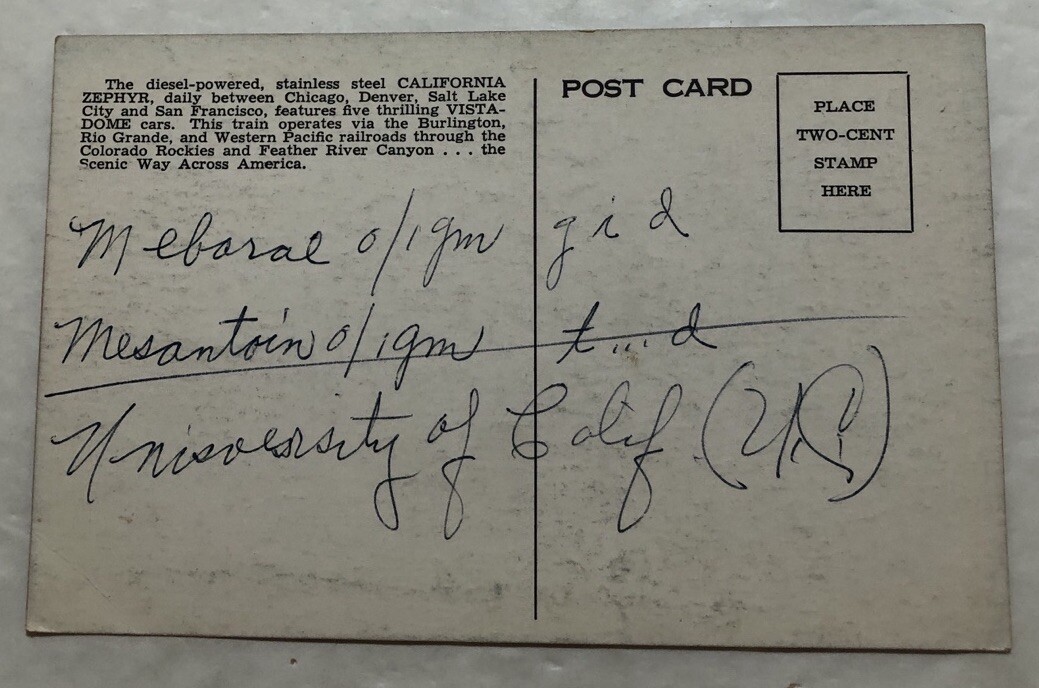 The diesel-powered, stainless steel CALIFORNIA
ZEPHYR, daily between Chicago, Denver, Salt Lake
City and San Francisco, features five thrilling VISTA-
DOME cars. This train operates via the Burlington,
Rio Grande, and Western Pacific railroads through the
Colorado Rockies and Feather River Canyon . . . the
Scenic Way Across America.
POST CARD
PLACE
TWO-CENT
STAMP
HERE
Mebaral 0/1gm gid
Mesantoin 0/1gm t...d
University of Calif